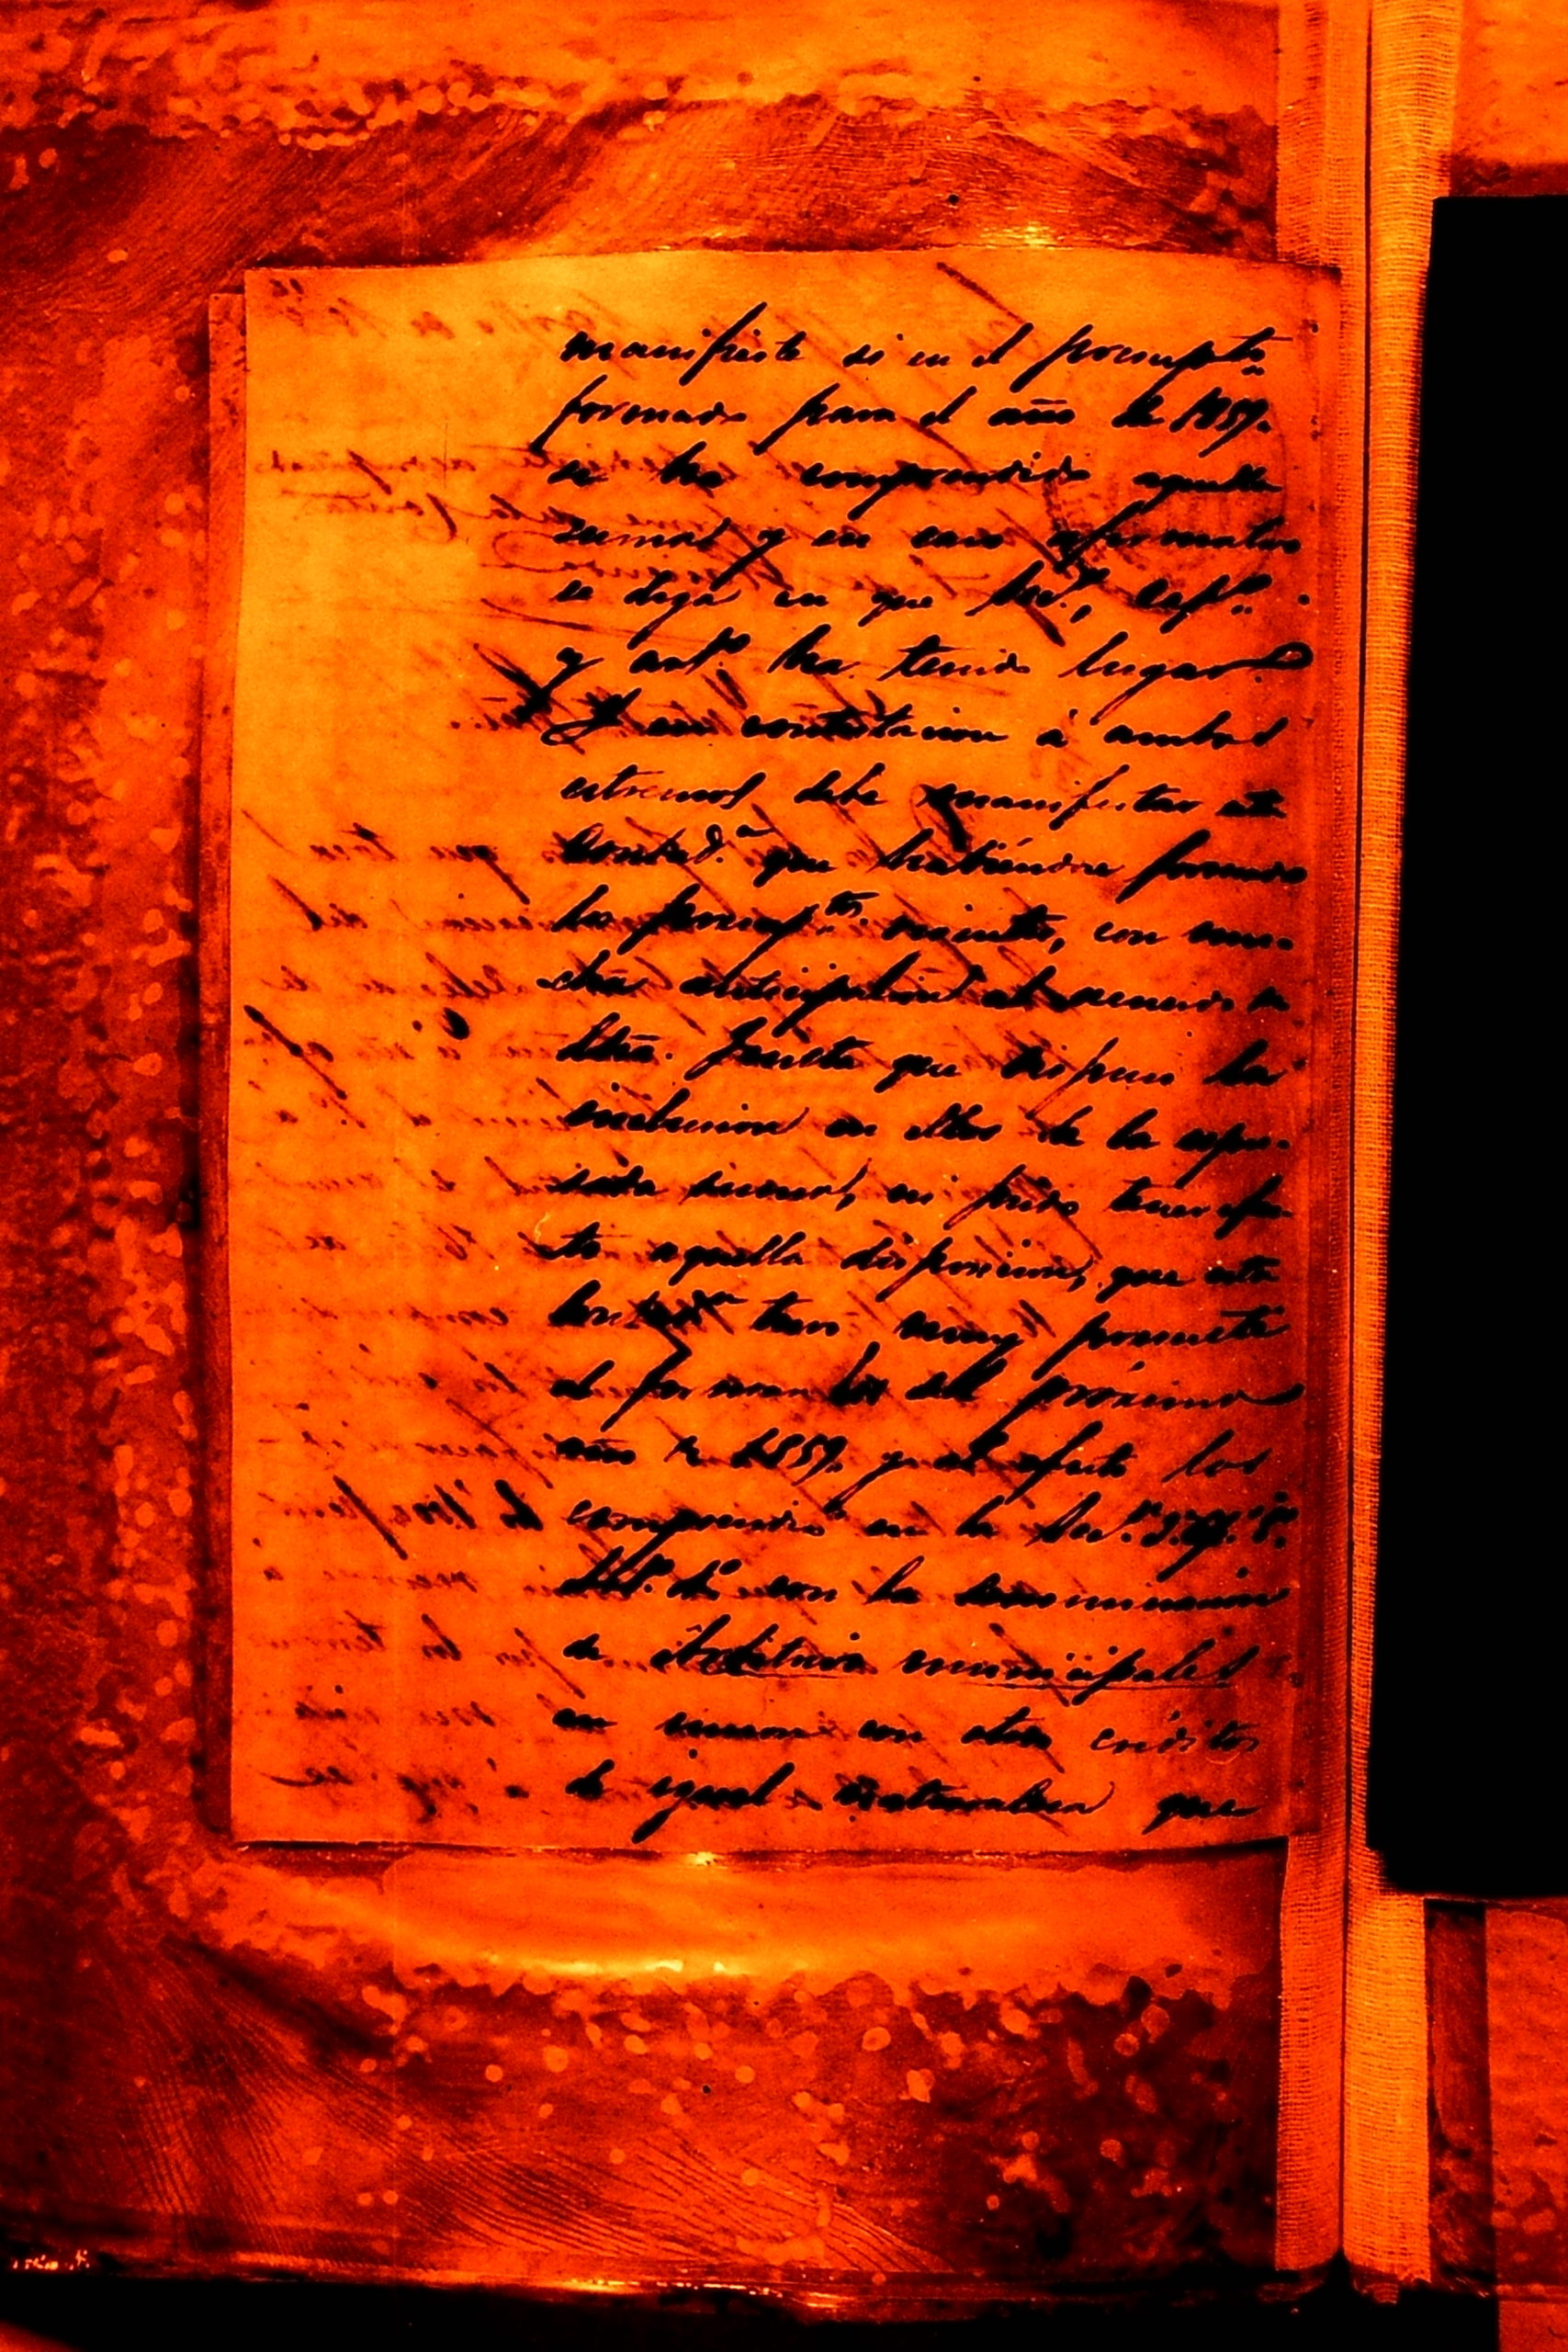 manifieste si en el presupto
formado para el año de 1859.
se ha comprendido aquella
suma y en caso afirmativo
se diga en que Sec.ⁿ, Cap.º
y art.º ha tenido lugar.
Y en contestacion á ambos
estremos debe manifestar esta
Contad.ª que habiéndose formado
los presup.tos vigentes, con mu-
cha anticipacion al acuerdo de
dha. Junta que dispuso la
inclusion en ellos de la espre-
sada suma, no pudo tener efec-
to aquella disposicion, que esta
Contad.ª tuvo muy presente
al formar los del próximo
año de 1859, y al efecto los
comprendió en la Sec.ⁿ
art.º con la denominacion
de Arbitrios municipales
en union con otros créditos
de igual naturaleza que